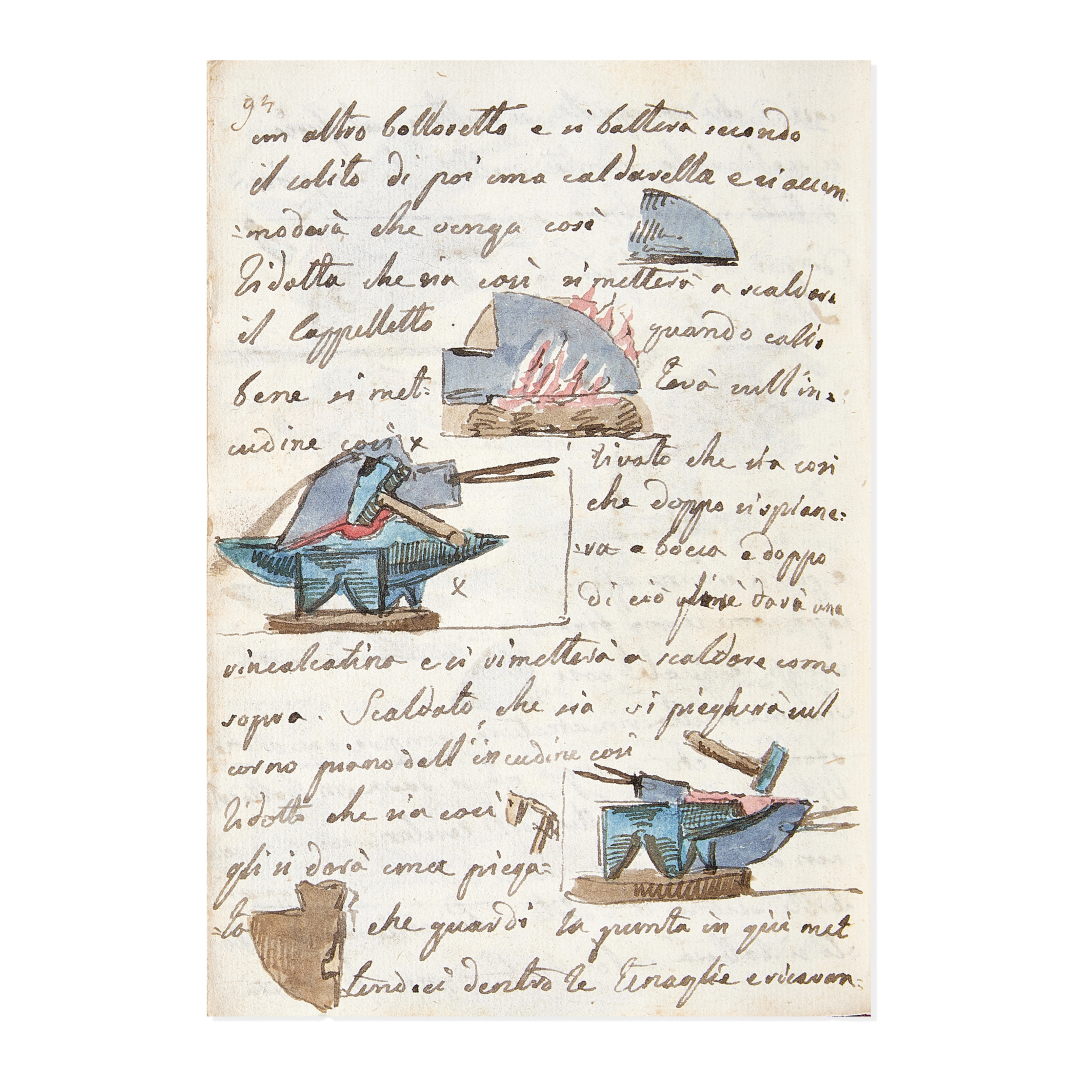 94
un altro bolloretto e si batterà secondo
il solito di poi una caldarella e si accom.
:moderà che venga così
Ridotta che sia così si metterà a scaldare
il Cappelletto . quando cali.
bene si met: terà sull'in:
cudine così x
tirato che sia così
che doppo si spiane:
:rà a bocca e doppo
di ciò darà una
rincalcatina e si rimetterà a scaldare come
sopra. Scaldato che sia si piegherà sul
corno piano dell'incudine così
Ridotto che sia così
gli si darà una piega:
:ta che guardi la punta in giù met
tendoci dentro le Tenaglie e ricavan:
x